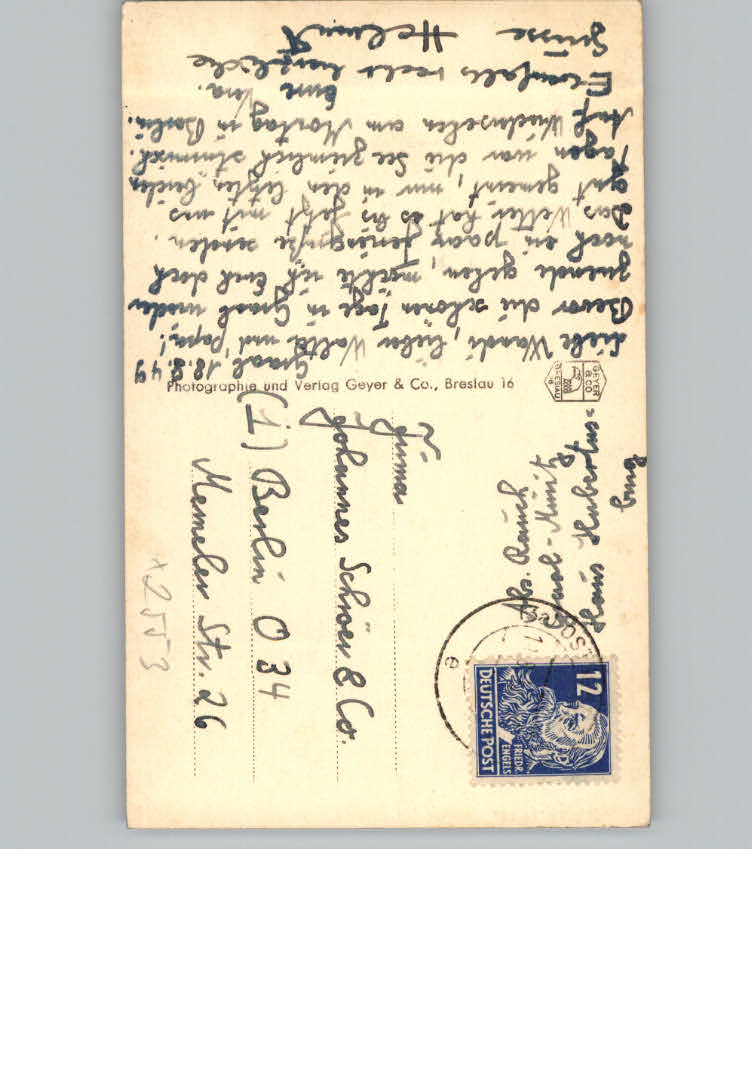 Graal, 18.9.49
Liebe Wandi, lieber Walter und Papa!
Bevor die schönen Tage in Graal wieder
zuende gehen, möchte ich Euch doch
noch ein paar Feriengrüße senden.
Das Wetter hat es bis jetzt mit uns
gut gemeint, nur in den letzten beiden
Tagen war die See ziemlich stürmisch.
Auf Wiedersehen am Montag in Berlin.
Eure Vera.
Ebenfalls recht herzliche
Grüsse Helmut
Photographie und Verlag Geyer & Co., Breslau 16
GEYER
& CO
BRESLAU
16
Abs. Rauch
Graal-Müritz
Haus Hubertus=
burg
Firma
Johannes Schröer & Co.
(1) Berlin O 34
Memeler Str. 26
x2553
12
DEUTSCHE POST
FRIEDR.
ENGELS
e